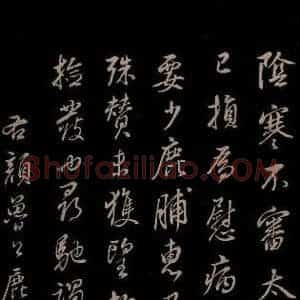 陰寒不審太
已損否慰病
要少鹿脯惠
殊赞未獲望
捡發也尋馳謁
右顔魯公鹿
shufaziliao.com